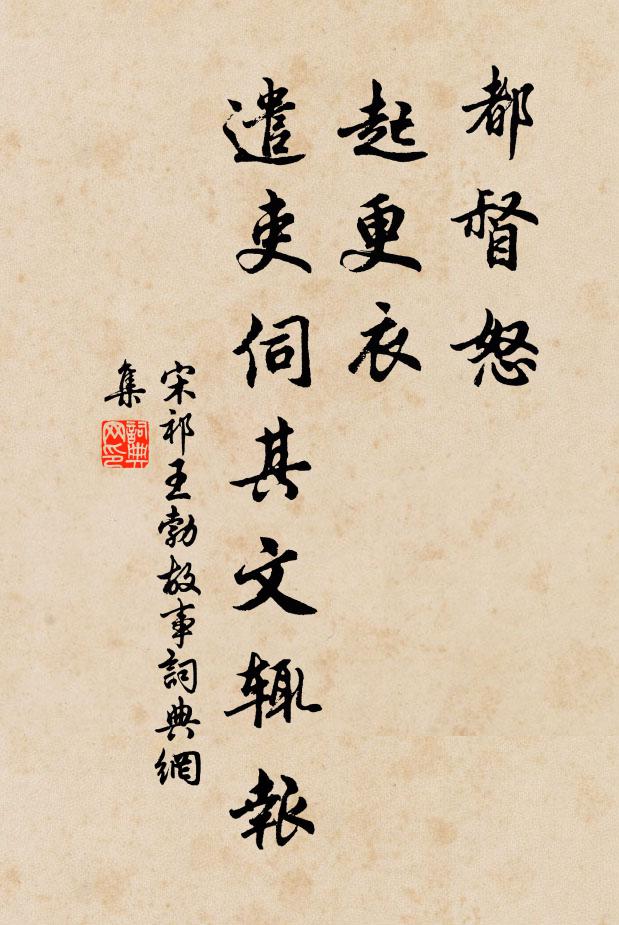 都督怒
起更衣
遣吏伺其文辄報
宋祁王勃故事詞典網
集
詞典
网印